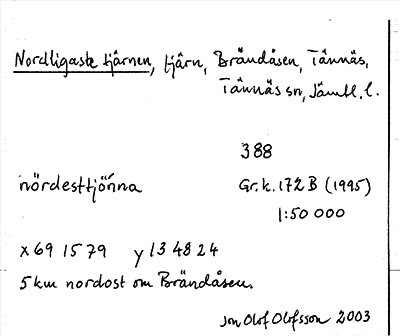 Nordligaste tjärnen, tjärn, Brändåsen, Tännäs,
Tännäs sn, Jämtl. l.
388
nördesttjönna Gr.k. 172 B (1995)
1:50 000
x 69 15 79 y 13 48 24
5 km nordost om Brändåsen.
Jon Olof Olofsson 2003